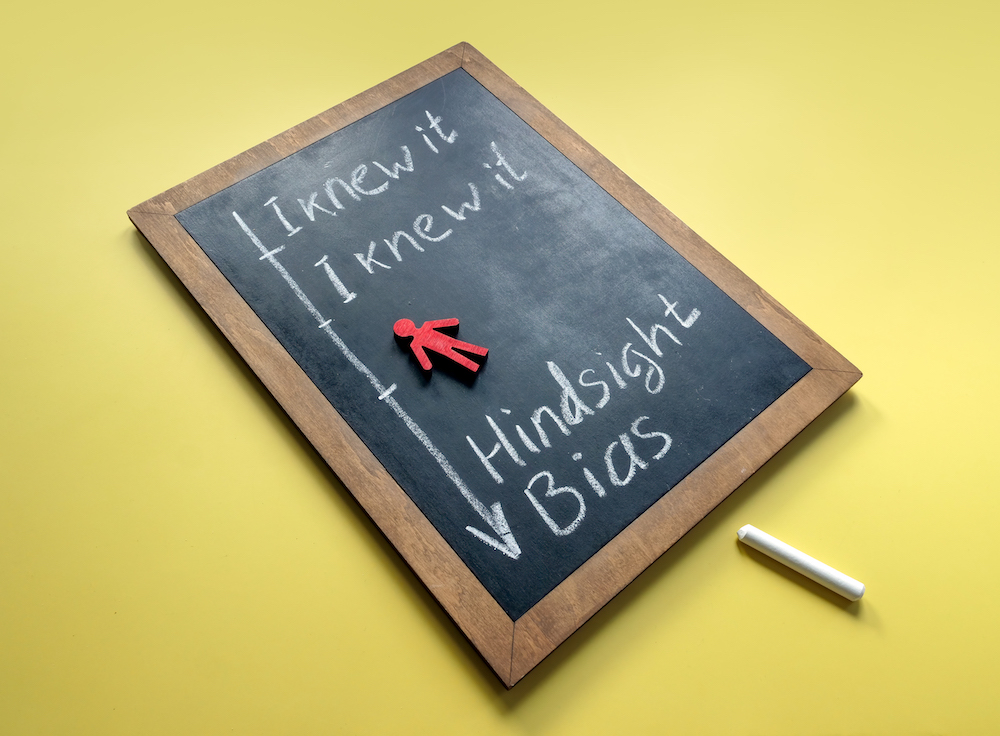 I knew it
I knew it
Hindsight
Bias